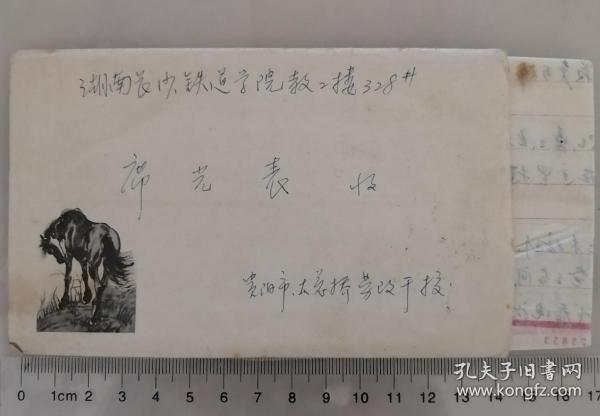 湖南长沙铁道学院教二楼328#
席光表 收
贵阳市大总桥劳改干校
0 1cm 2 3 4 5 6 7 8 9 10 11 12 13 14 15 16 17 18
孔夫子旧书网
www.kongfz.com